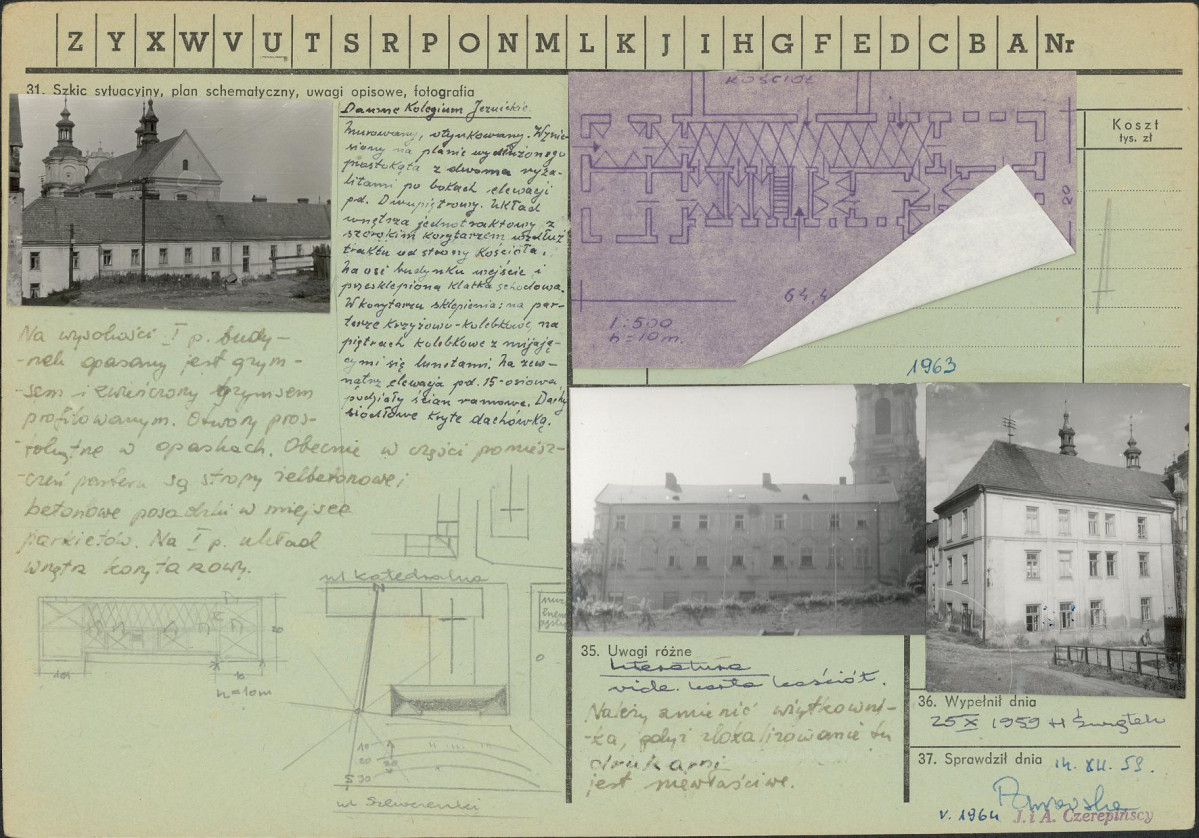 Z Y X W V U T S R P O N M L K J I H G F E D C B A Nr
31. Szkic sytuacyjny, plan schematyczny, uwagi opisowe, fotografia
Dawne Kolegium Jezuickie
Murowany, otynkowany. Wznie-
siony na planie wydłużonego
prostokąta z dwoma ryza-
litami po bokach elewacji
pd. Dwupiętrowy. Układ
wnętrza jednotraktowy z
szerokim korytarzem wzdłuż
traktu od strony Kościoła.
Na osi budynku wejście i
przesklepiona klatka schodowa.
W korytarzu sklepienia: na par-
terze krzyżowo-kolebkowe, na
piętrach kolebkowe z mijają-
cymi się lunetami. Na zew-
nątrz elewacja pd. 15-osiowa
podziały ścian ramowe. Dachy
siodłowe kryte dachówką.
Na wysokości I p. budy-
-nek opasany jest gzym-
-sem i zwieńczony gzymsem
profilowanym. Otwory pros-
-tokątne w opaskach. Obecnie w części pomiesz-
-czeń parteru są stropy żelbetonowe i
betonowe posadzki w miejsce
parkietów. Na I p. układ
wnętrz korytarzowy.
20
h=10m
ul Katedralna
N
10
20
S 30
ul Szewczenki
KOŚCIÓŁ
20
64,4
1:500
h=10m.
Koszt
tys. zł
1963
35. Uwagi różne
Literatura
vide. karta kościół.
Należy zmienić użytkowni-
-ka, gdyż zlokalizowanie tu
drukarni
jest niewłaściwe.
36. Wypełnił dnia
25 X 1959 H Świątek
37. Sprawdził dnia 14. XII. 59.
v. 1964 J. i A. Czerepińscy